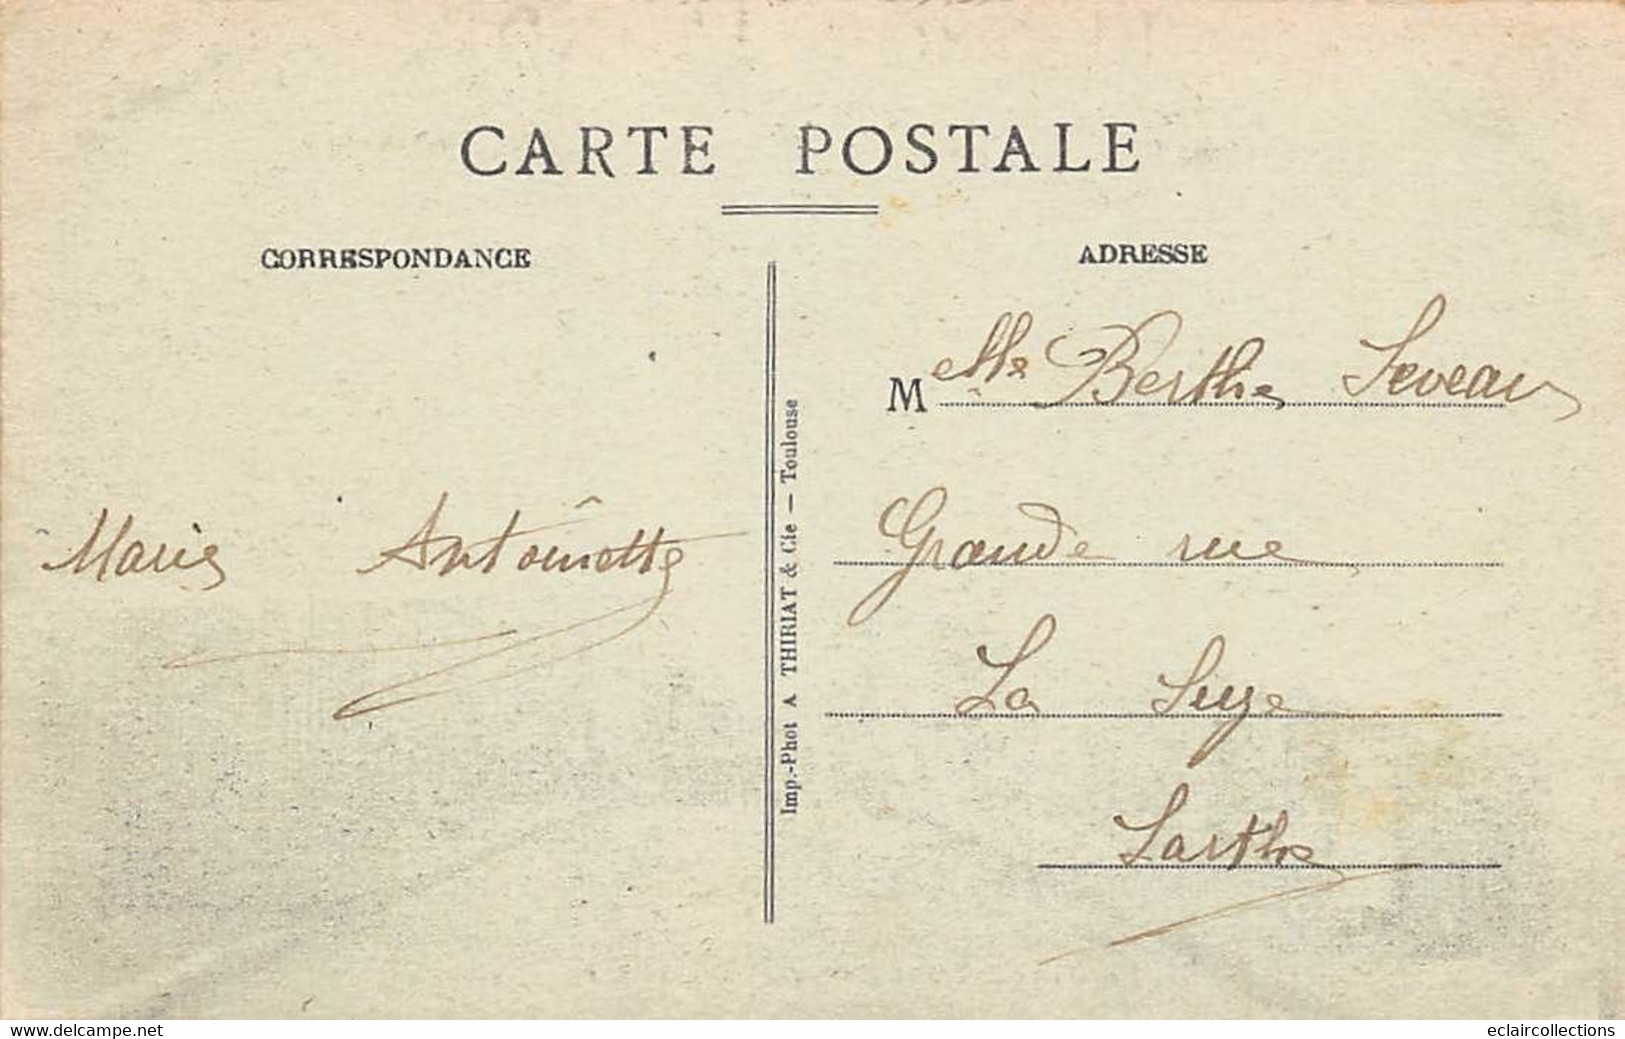 CARTE POSTALE
CORRESPONDANCE
ADRESSE
Melle Berthe Seveau
Marie Antoinette
Grande rue
La Suze
Sarthe
Imp.-Phot A THIRIAT & Cie — Toulouse
www.delcampe.net
eclaircollections